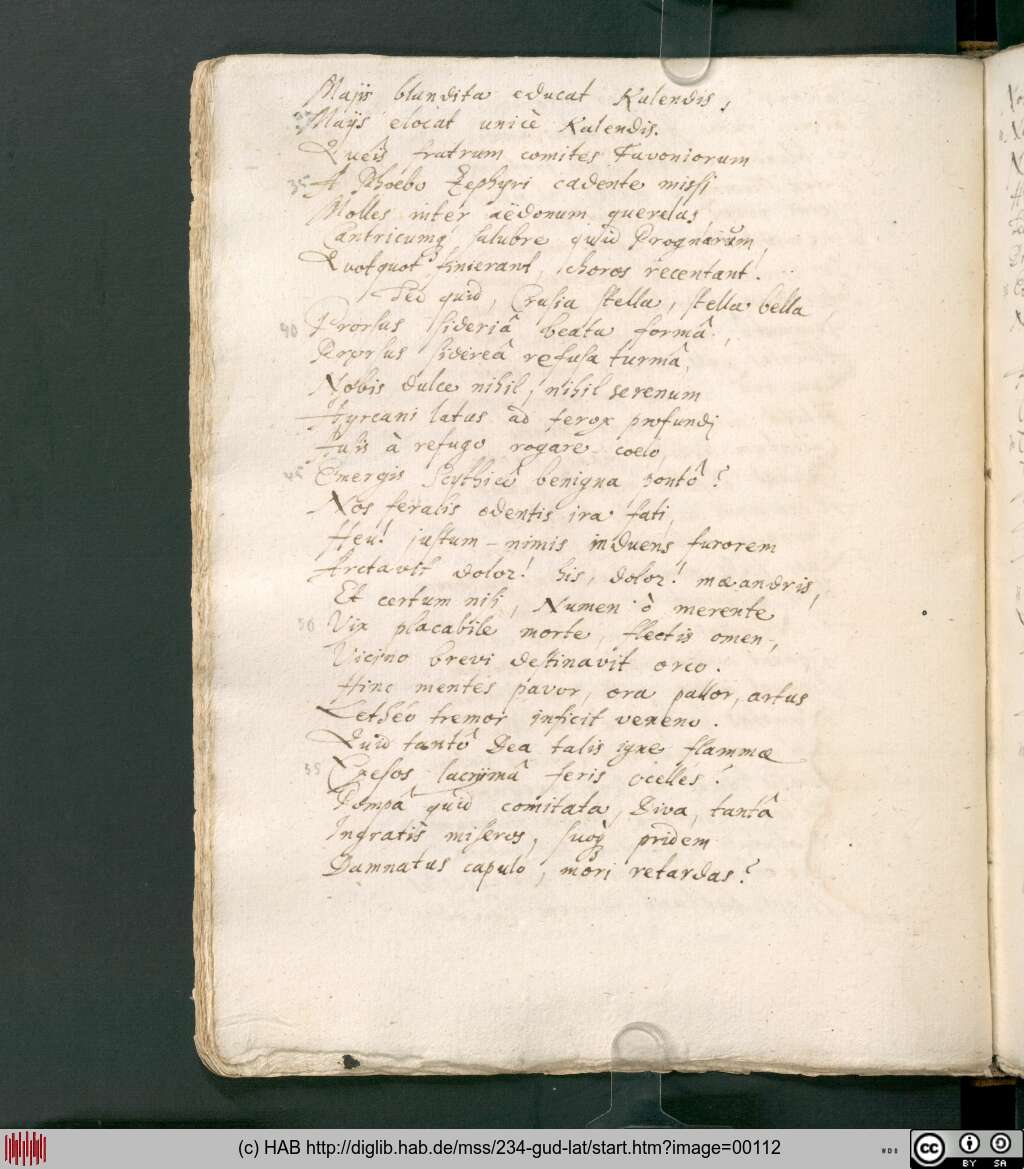 Majis blandita educat Kalendis,
Majis elocat unicè Kalendis.
Queis fratrum comites Favoniorum
35 A Phoebo Zephyri cadente missi
Molles inter aëdonum querelas,
Cantricumq, salubre quid Prognarum,
Quotquot finierant, choros recentant.
Sed quid, Crusia stella, stella bella
40 Prorsus sideriâ beata formâ,
Prorsus sidereâ refusa turmâ,
Nobis dulce nihil, nihil serenum
Hyrcani latus ad ferox profundi
Ausis à refugo rogare coelo
45 Emergis Scythicô benigna pontô?
Nos feralis edentis ira fati,
Heu! justum-nimis induens furorem
Arctavit dolor! his, dolor! maeandris,
Et certum nisi, Numen ò merente
50 Vix placabile morte, flectis omen,
Vicino brevi destinavit orco.
Hinc mentes pavor, ora pallor, artus
Letheo tremor inficit veneno.
Quid tantô Dea talis igne flammae
55 Exesos lacrymâ feris ocellos?
Pompâ quid comitata, Diva, tantâ
Ingratis miseros, suoq pridem
Damnatus capulo, mori retardas?
(c) HAB http://diglib.hab.de/mss/234-gud-lat/start.htm?image=00112
cc BY SA